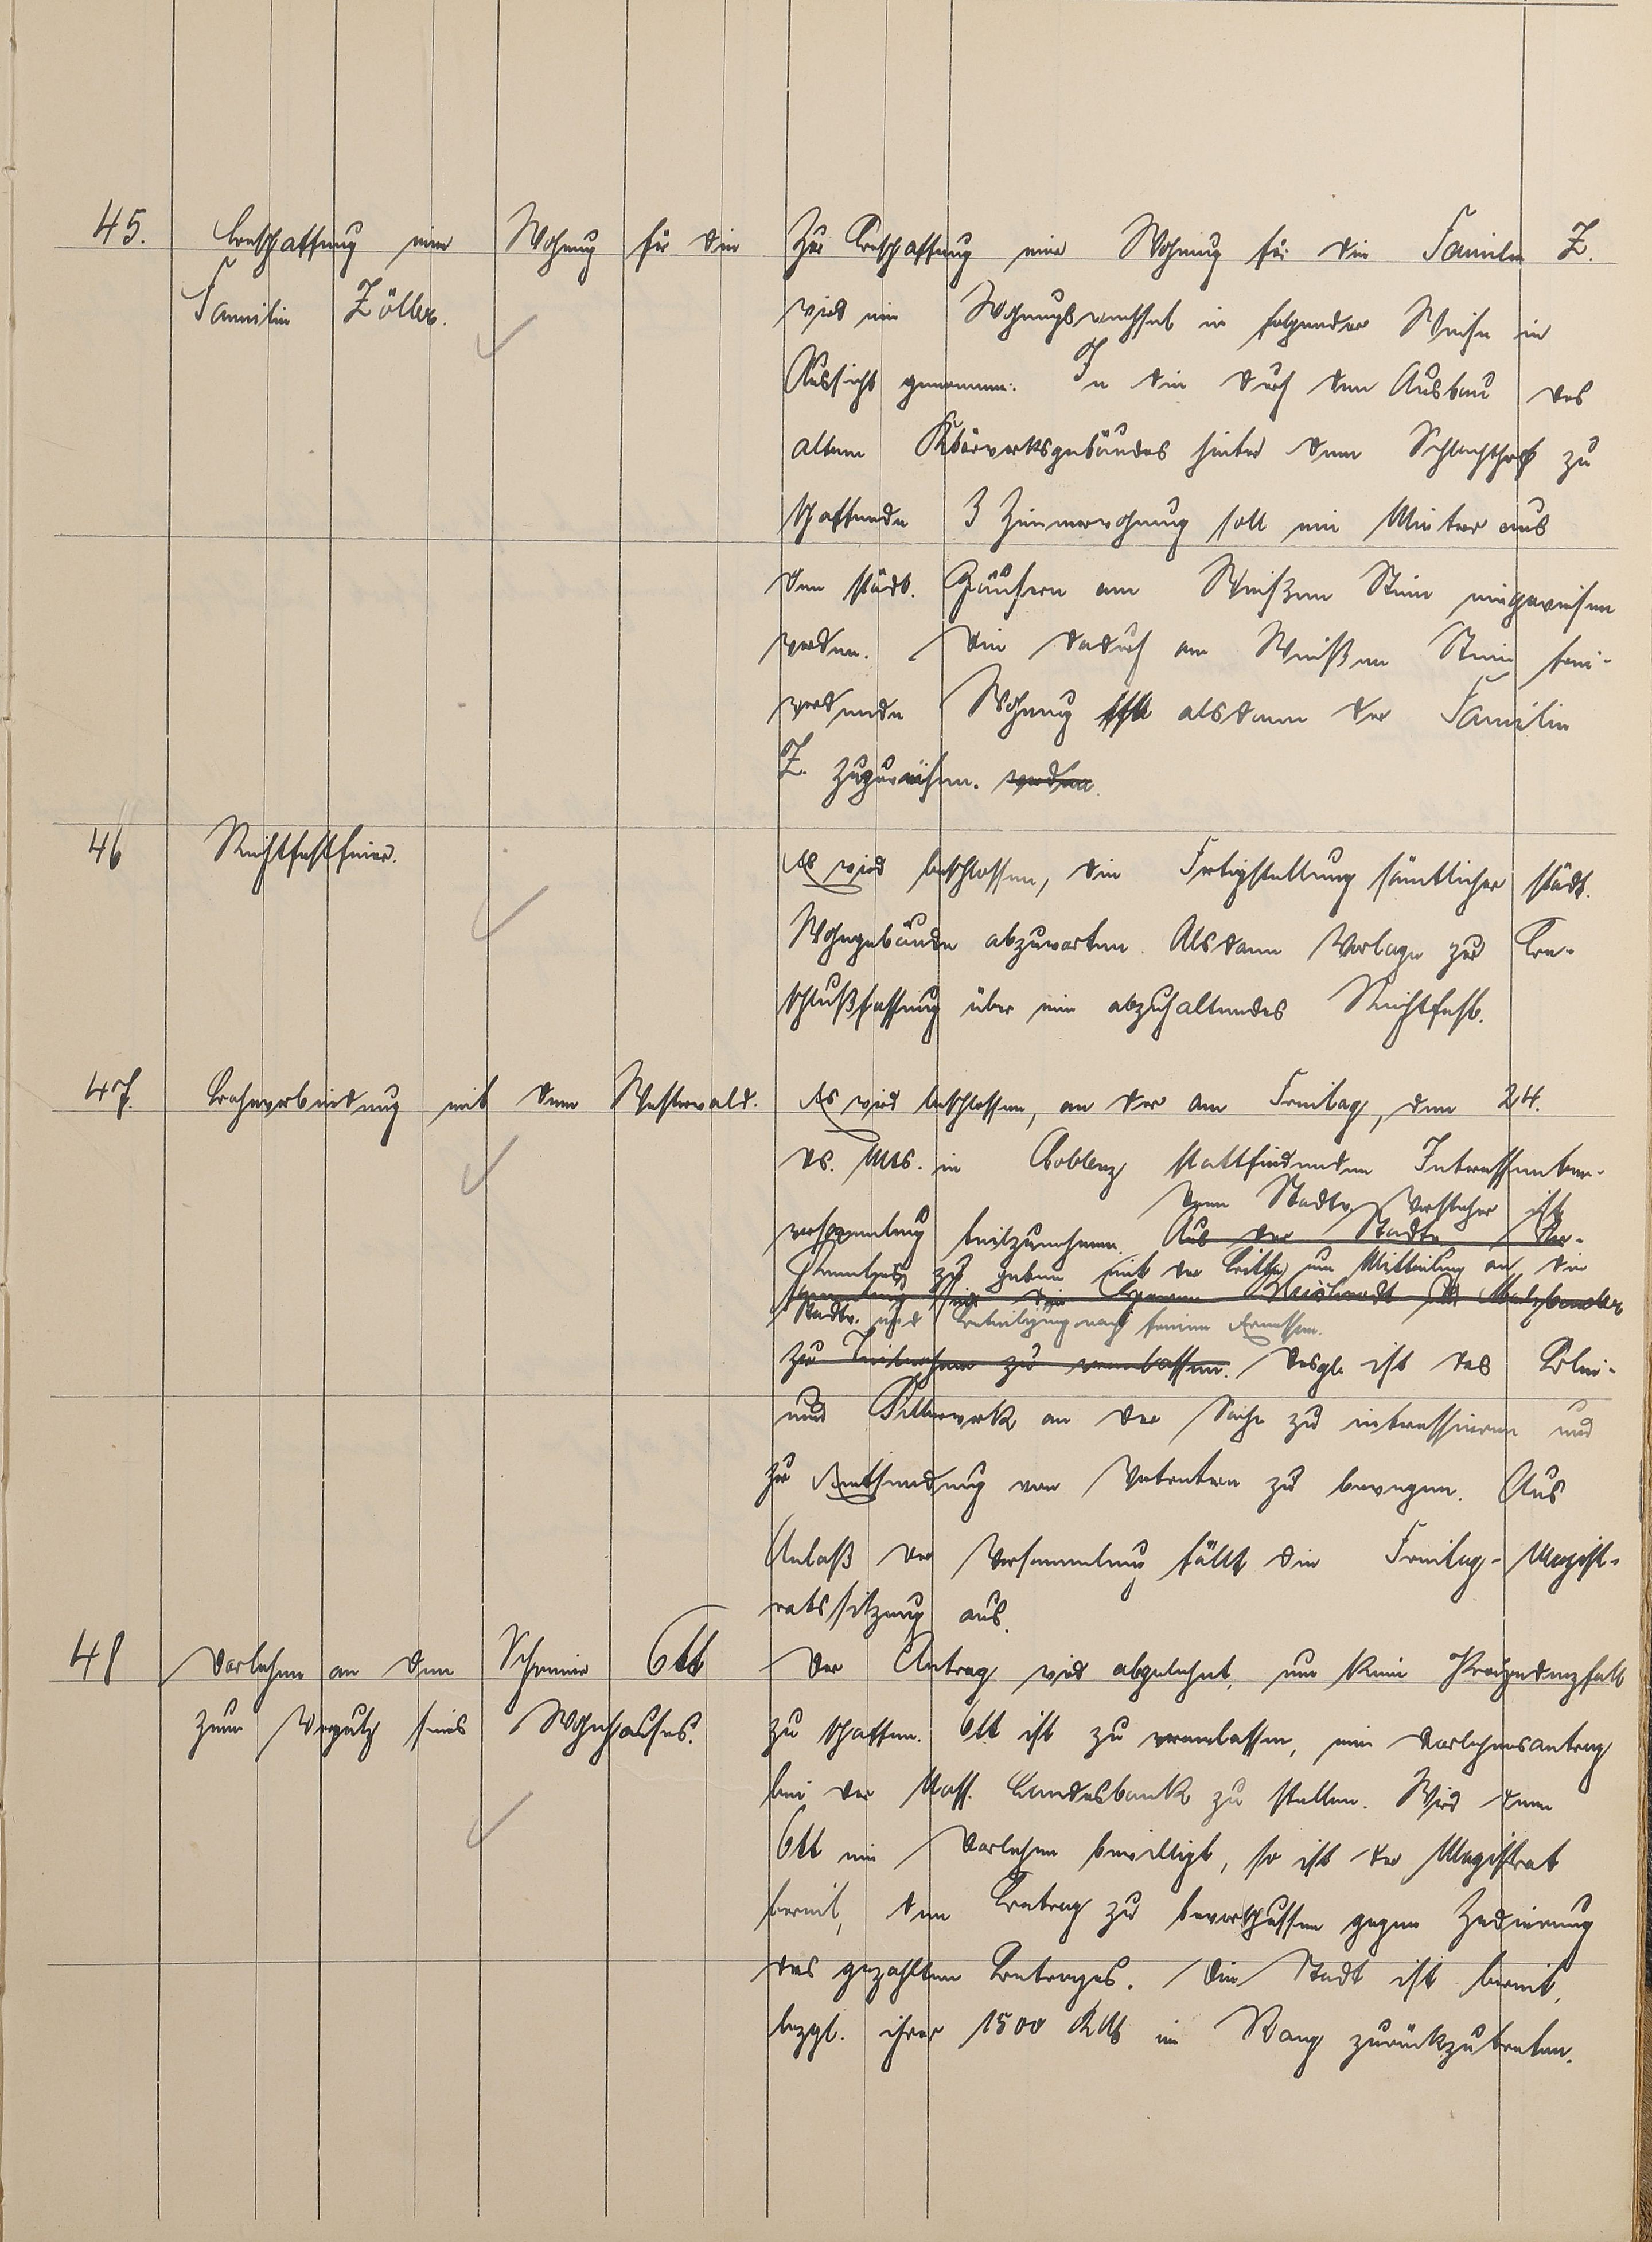 45.
Beschaffung einer Wohnung für die
Familie Zöller.
Zur Beschaffung einer Wohnung für die Familie Z.
wird ein Wohnungswechsel in folgender Weise in
Aussicht genommen: In die durch den Ausbau des
alten Klärwerksgebäudes hinter dem Schlachthof zu
schaffende 3 Zimmerwohnung soll ein Mieter aus
den städt. Häusern am Weißen Stein eingewiesen
werden. Die dadurch am Weißen Stein frei-
werdende Wohnung ist alsdann der Familie
Z. zuzuweisen. werden.
46
Richtfestfeier.
Es wird beschlossen, die Fertigstellung sämtlicher städt.
Wohngebäude abzuwarten. Alsdann Vorlage zur Be-
schlußfassung über ein abzuhaltendes Richtfest.
47.
Bahnverbindung mit dem Westerwald.
Es wird beschlossen, an der am Freitag, dem 24.
ds. Mts. in Coblenz stattfindenden Interessenten-
Dem Stadtv. Vorsteher ist
versammlung teilzunehmen. Aus der Stadtv. Ver-
Kenntnis zu geben mit der Bitte um Mitteilung an die
sammlung sind die Herren
Stadtv. und Beteiligung nach freiem Ermessen.
zur Teilnahme zu veranlassen. Desgl. ist das Blei-
und Silberwerk an der Sache zu interessieren und
zur Entsendung von Vertretern zu bewegen. Aus
Anlaß der Versammlung fällt die Freitag-Magist-
ratssitzung aus.
48
Darlehen an den Schreiner Ott
zum Verputz seines Wohnhauses.
Der Antrag wird abgelehnt, um kein Präzedenzfall
zu schaffen. Ott ist zu veranlassen, ein Darlehensantrag
bei der Nass. Landesbank zu stellen. Wird dem
Ott ein Darlehen bewilligt, so ist der Magistrat
bereit, den Betrag zu bevorschussen gegen Zedierung
des gezahlten Betrages. Die Stadt ist bereit,
bezgl. ihrer 1500 RM im Rang zurückzutreten.